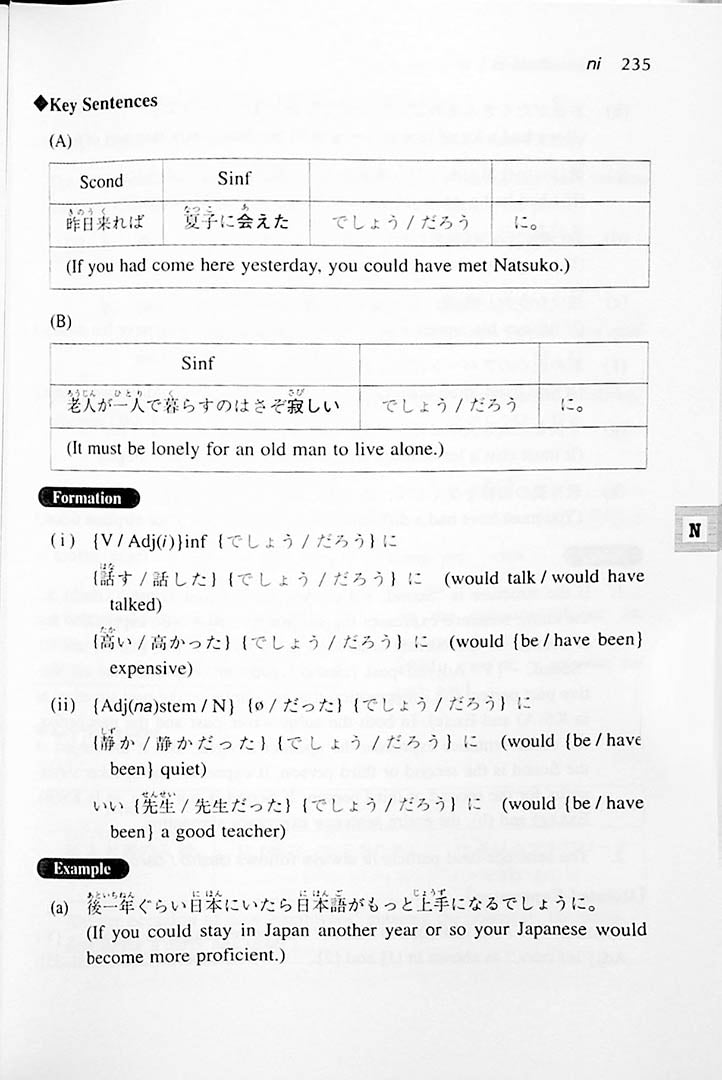 ni 235
◆Key Sentences
(A)
Scond Sinf
きのうく なつこ あ
昨日来れば 夏子に会えた でしょう / だろう に。
(If you had come here yesterday, you could have met Natsuko.)
(B)
Sinf
ろうじん ひとり く さび
老人が一人で暮らすのはさぞ寂しい でしょう / だろう に。
(It must be lonely for an old man to live alone.)
Formation
(i) {V / Adj(i)}inf {でしょう / だろう} に
はな
{話す / 話した} {でしょう / だろう} に (would talk / would have
talked)
たか
{高い / 高かった} {でしょう / だろう} に (would {be / have been}
expensive)
(ii) {Adj(na)stem / N} {ø / だった} {でしょう / だろう} に
しず
{静か / 静かだった} {でしょう / だろう} に (would {be / have
been} quiet)
せんせい
いい {先生 / 先生だった} {でしょう / だろう} に (would {be / have
been} a good teacher)
N
Example
あといちねん にほん にほんご じょうず
(a) 後一年ぐらい日本にいたら日本語がもっと上手になるでしょうに。
(If you could stay in Japan another year or so your Japanese would
become more proficient.)